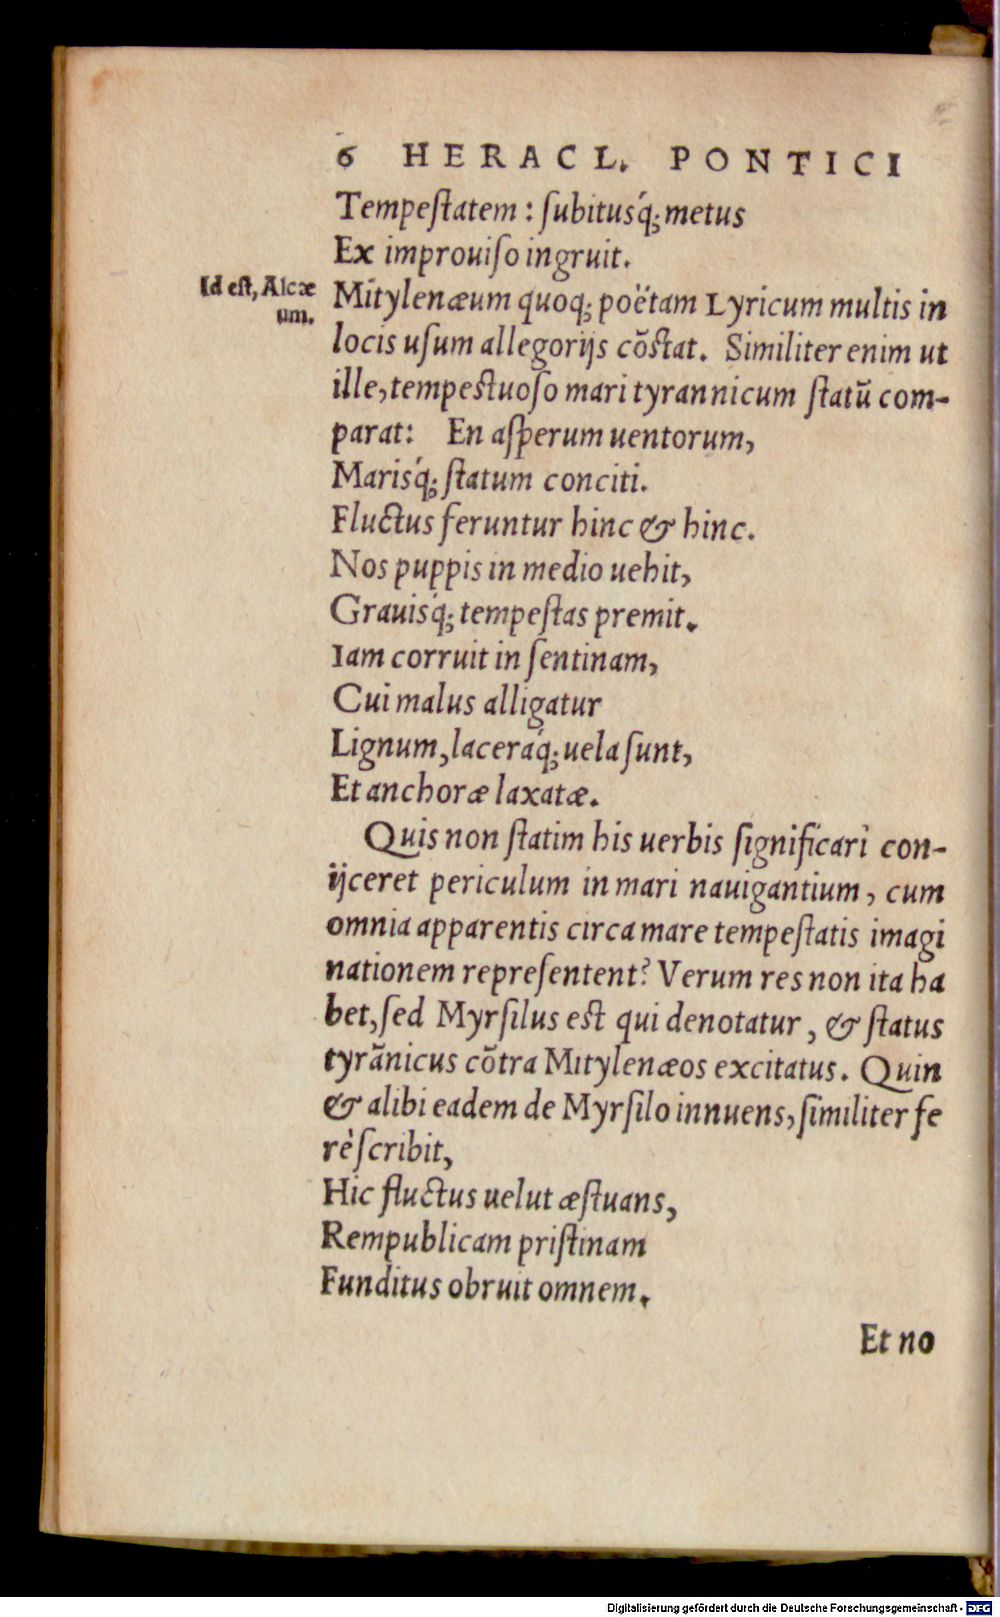 6 HERACL. PONTICI
Tempeſtatem: ſubitusq́; metus
Ex improuiſo ingruit.
Id eſt, Alcæ
um.
Mitylenæum quoq; poëtam Lyricum multis in
locis uſum allegorijs cõſtat. Similiter enim ut
ille, tempeſtuoſo mari tyrannicum ſtatũ com-
parat: En aſperum uentorum,
Marisq́; ſtatum conciti.
Fluctus feruntur hinc & hinc.
Nos puppis in medio uehit,
Grauisq́; tempeſtas premit.
Iam corruit in ſentinam,
Cui malus alligatur
Lignum, laceraq́; uela ſunt,
Et anchoræ laxatæ.
Quis non ſtatim his uerbis ſignificari con-
ijceret periculum in mari nauigantium, cum
omnia apparentis circa mare tempeſtatis imagi
nationem repreſentent? Verum res non ita ha
bet, ſed Myrſilus eſt qui denotatur, & ſtatus
tyrãnicus cõtra Mitylenæos excitatus. Quin
& alibi eadem de Myrſilo innuens, ſimiliter fe
rè ſcribit,
Hic fluctus uelut æſtuans,
Rempublicam priſtinam
Funditus obruit omnem.
Et no
Digitalisierung gefördert durch die Deutsche Forschungsgemeinschaft - DFG